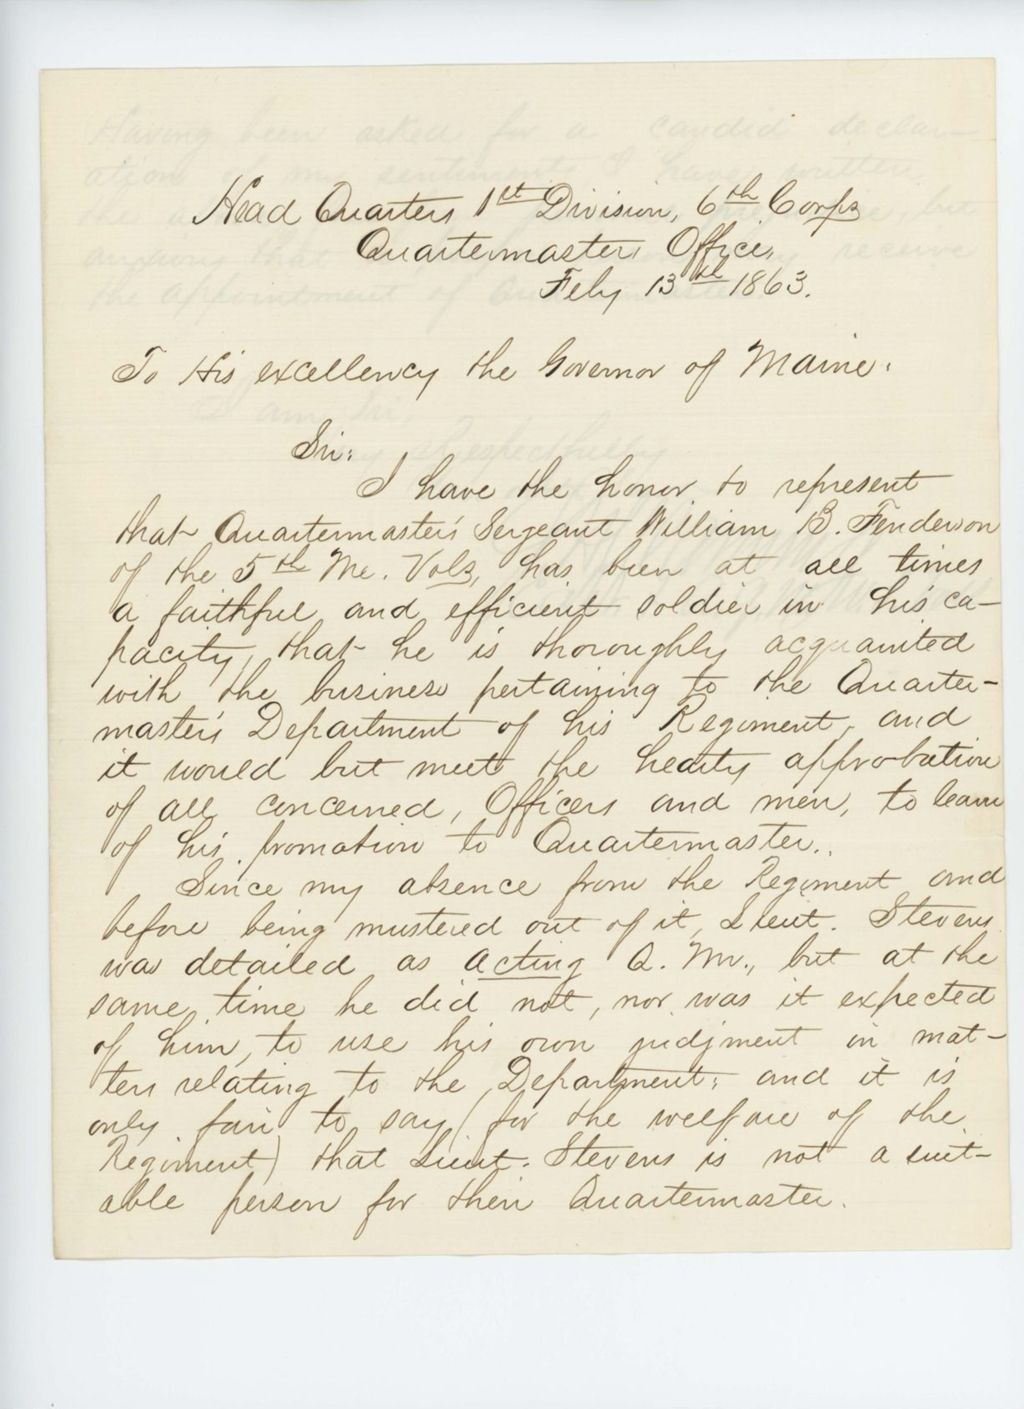 Head Quarters 1st Division, 6th Corps
Quartermasters Office,
Feby 13th 1863.
To His excellency the Governor of Maine:
Sir:
I have the honor to represent
that Quartermaster's Sergeant William B. Fenderson
of the 5th Me. Vols, has been at all times
a faithful and efficient soldier in his ca-
pacity, that he is thoroughly acquainted
with the business pertaining to the Quarter-
master's Department of his Regiment, and
it would but meet the hearty approbation
of all concerned, Officers and men, to learn
of his promotion to Quartermaster.
Since my absence from the Regiment and
before being mustered out of it, Lieut. Stevens
was detailed as acting Q. Mr., but at the
same time he did not, nor was it expected
of him, to use his own judjment in mat-
ters relating to the Department; and it is
only fair to say (for the welfare of the
Regiment) that Lieut. Stevens is not a suit-
able person for their Quartermaster.